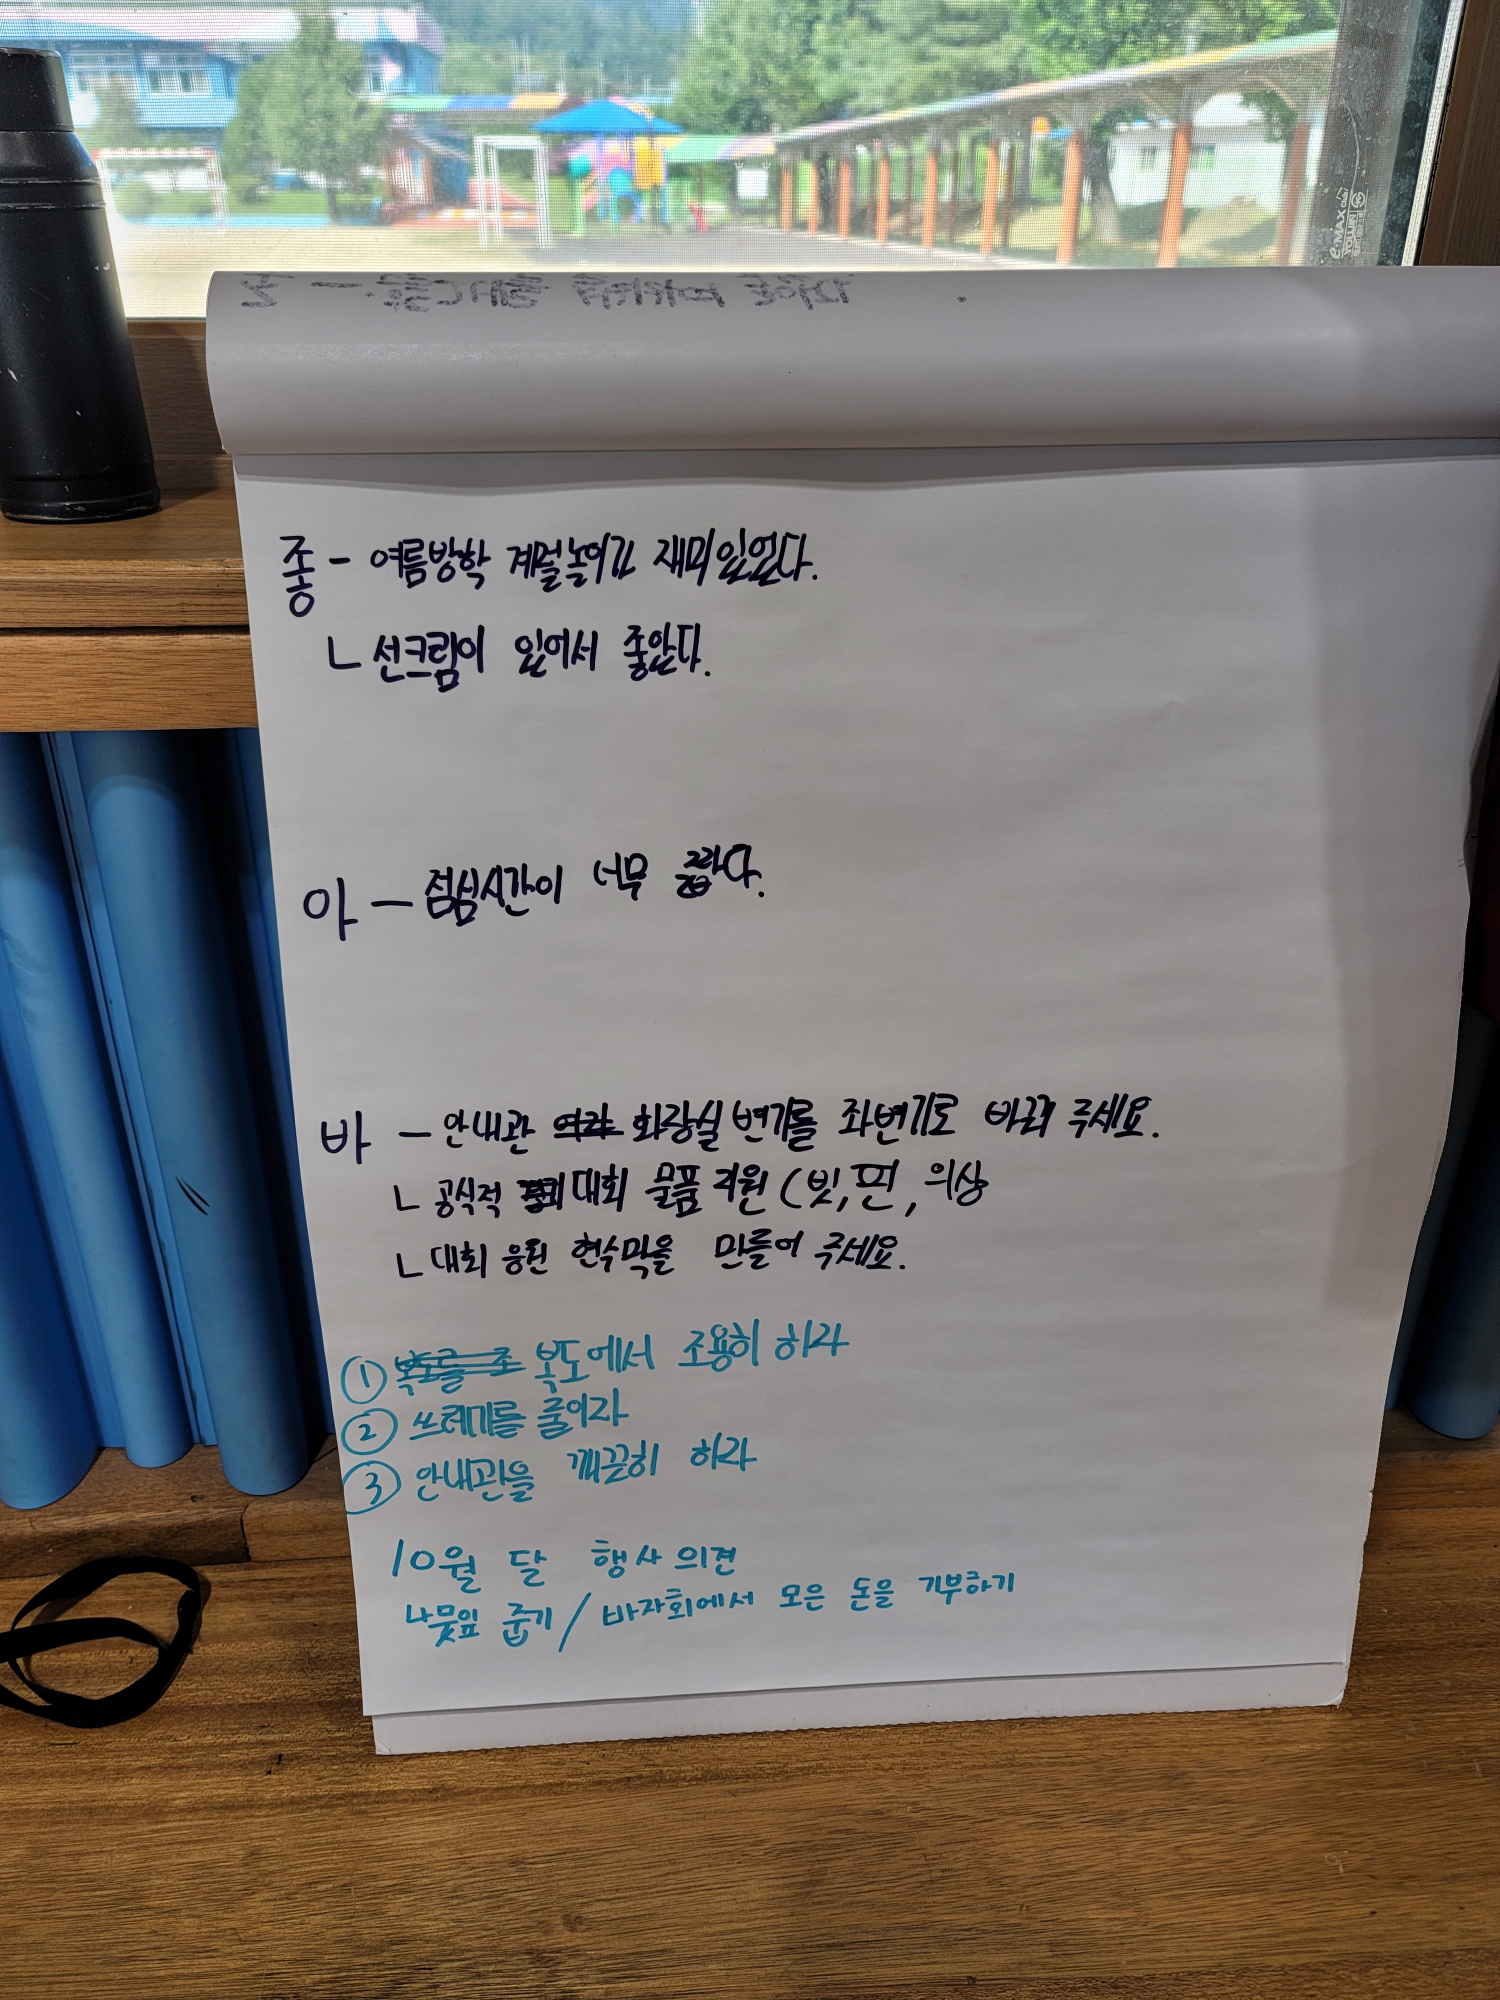 좋 - 여름방학 계절놀이가 재미있었다.
ㄴ 선크림이 있어서 좋았다.
아 - 점심시간이 너무 짧다.
바 - 안내관 화장실 변기를 좌변기로 바꿔 주세요.
ㄴ 공식적 대회 물품 지원 (빗, 핀, 의상
ㄴ 대회 응원 현수막을 만들어 주세요.
① 복도에서 조용히 하라
② 쓰레기를 줄이라
③ 안내관을 깨끗히 하라
10월 달 행사 의견
나뭇잎 줍기 / 바자회에서 모은 돈을 기부하기